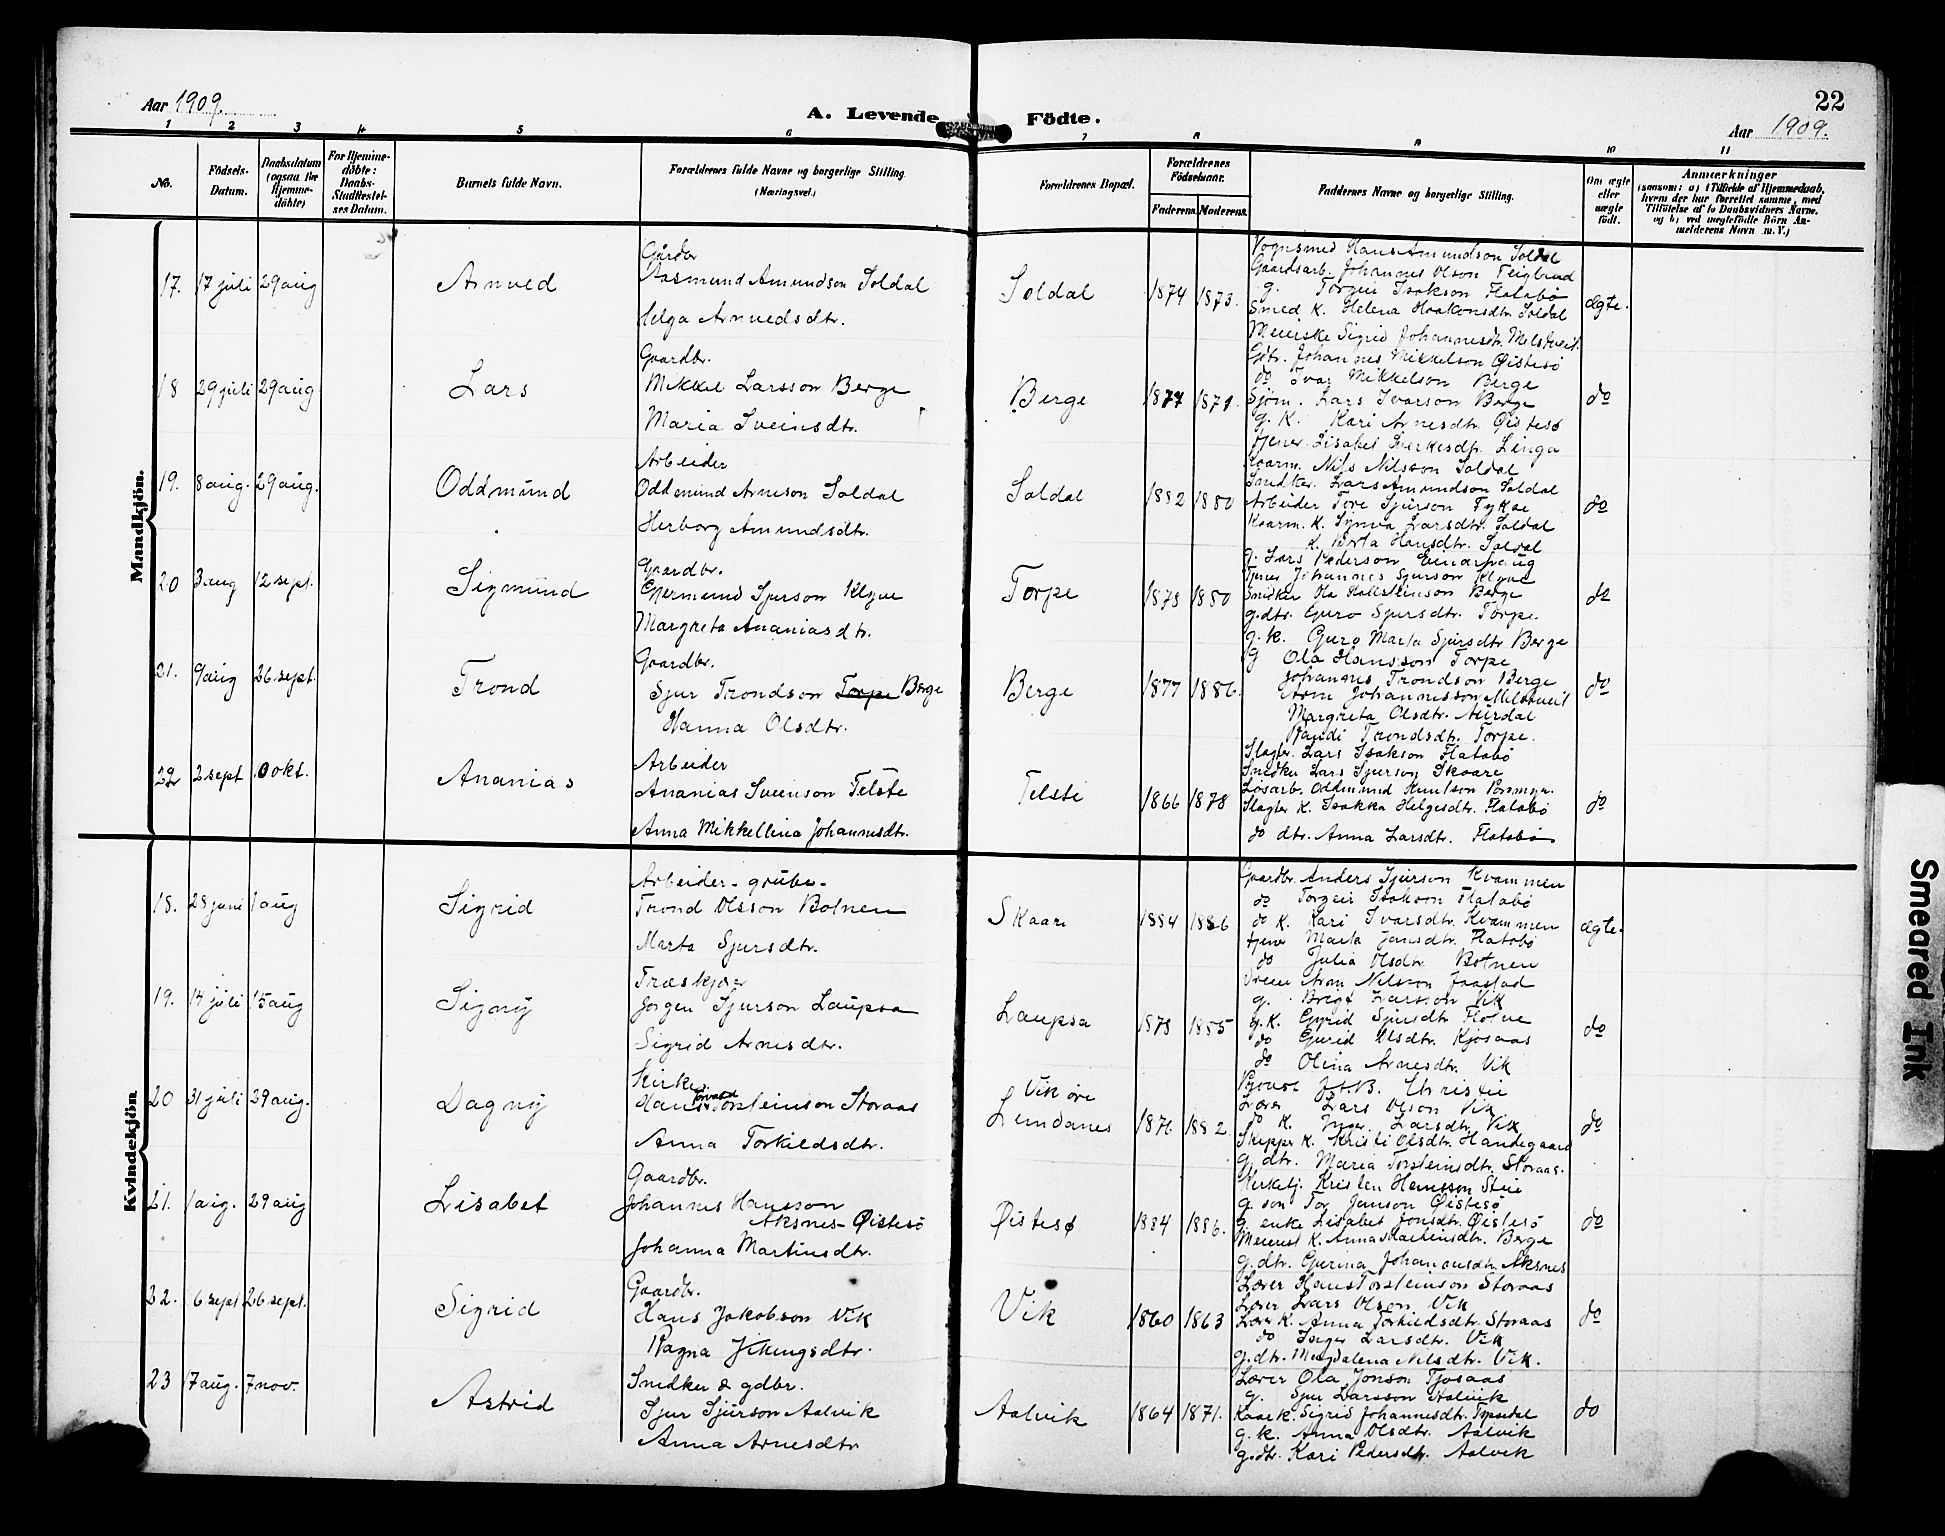 Aar 1909.
A. Levende Födte.
22
Aar 1909.
1 2 3 4 5 6 7 8 9 10 11
No.
Födsels-
Datum.
Daabsdatum
(ogsaa for
Hjemme-
döbte)
For Hjemme-
döbte:
Daabs-
Stadfestel-
ses Datum.
Barnets fulde Navn.
Forældrenes fulde Navne og borgerlige Stilling
(Næringsvei.)
Forældrenes Bopæl.
Forældrenes
Födselsaar.
Faderens. Moderens.
Faddernes Navne og borgerlige Stilling.
Om ægte
eller
uægte
födt.
Anmærkninger
(saasom: a) i Tilfælde af Hjemmedaab,
hvem der har forrettet samme, med
Tilföielse af to Daabsvidners Navne,
og b) ved uægtefödte Börn An-
melderens Navn m. V.)
Mandkjön.
17. 17 juli 29 aug
Arnved
Gårdbr
Aasmund Amundson Soldal
Helga Arnvedsdtr.
Soldal
1874 1873.
Vognsmed Hans Amundson Soldal
Gaardsarb. Johannes Olson Teiglund
g. Torgeir Isakson Flatabø
Smed K. Helena Haakonsdtr. Soldal
Meierske Sigrid Johannesdtr. Melstveit.
ægte.
18 29 juli 29 aug
Lars
Gaardbr.
Mikkel Larsson Berge
Maria Sveinsdtr.
Berge
1877 1871.
Gdbr. Johannes Mikkelson Øistesø
do Ivar Mikkelson Berge
Sjöm. Lars Ivarson Berge
g. K. Kari Arnesdtr. Øistesø
tjener Lisabet Sverkesdtr. Linga
do
19. 8 aug. 29 aug.
Oddmund
Arbeider
Oddmund Arneson Soldal
Herborg Amundsdtr.
Soldal
1882 1880
Kaarm. Nils Nilsson Soldal
Snedker Lars Amundson Soldal
Arbeider Tore Sjurson Fykse
Kaarm. K. Synva Larsdtr. Soldal
K. Brita Hansdtr. Soldal
do
20 3 aug 12 sept.
Sigmund
Gaardbr.
Gjermund Sjurson Klyve
Margreta Ananiasdtr.
Torpe
1878 1880
g. Lars Pederson
Tjener Johannes Sjurson Klyve
Snidker Ola Hallsteinson Berge
g.dtr. Guro Sjursdtr. Torpe.
g. K. Guro Marta Sjursdtr Berge
do
21. 9 aug 26 sept.
Trond
Gaardbr.
Sjur Trondson Torpe Berge
Hanna Olsdtr.
Berge
1877 1886.
g Ola Hansson Torpe
Johannes Trondson Berge
Arne Johannesson Melstveit
Margreta Olsdtr. Aurdal
Randi Trondsdtr. Torpe.
do
22 2 sept 10 okt.
Ananias
Arbeider
Ananias Sveinson Telste
Anna Mikkellina Johannesdtr.
Telste
1866 1878
Slagter Lars Isakson Flatabø
Snedker Lars Sjurson Skaare
Løsarb. Oddmund Knutson
Slagter K. Isakka Helgesdtr. Flatabø
do dtr. Anna Larsdtr. Flatabø
do
Kvindekjön
18. 28 juni 1 aug
Sigrid
Arbeider - grube-
Trond Olsson Botnen
Marta Sjursdtr.
Skaare
1884 1886
Gaardbr. Anders Sjurson Kvammen
do Torgeir Isakson Flatabø
do K. Kari Ivarsdtr. Kvammen
tjener Marta Jonsdtr. Flatabø
do Julia Olsdtr. Botnen
ægte.
19. 14 juli 15 aug
Signy
Træskjærer
Jørgen Sjurson Laupsa
Sigrid Arnesdtr.
Laupsa
1878 1885
Arne Nilsson Jaastad
g. Brigt Larsson Vik
g. K. Gyrid Sjursdtr. Flotve
do Gurid Olsdtr. Kjosaas
do Olina Arnesdtr. Vik
do
20 31 juli 29 aug.
Dagny
Kirkes.
Hans Torvald Torsteinson Storaas
Anna Torkildsdtr.
Vikøre
Lundanes
1876 1882.
Provst J.K.B. Christie
Lærer Lars Olson Vik
do K. Inger Larsdtr. Vik
Skipper K. Kristi Olsdtr. Handegaard
g. dtr. Maria Torsteinsdtr. Storaas.
do
21. 1 aug. 29 aug
Lisabet
Gaardbr.
Johannes Hansson
Aksnes - Øistesø
Johanna Martinsdtr.
Øistesø
1884 1886.
Kirketj. Kristen Hansson Steie
g. son Tor Jonson Øistesø
g. enke Lisabet Jonsdtr. Øistesø
Meierist K. Anna Martinsdtr. Berge
g.dtr. Gurina Johannesdtr. Aksnes
do
22. 6 sept 26 sept.
Sigrid
Gaardbr.
Hans Jakobson Vik
Ragna Vikingsdtr.
Vik
1860 1863
Lærer Hans Torsteinson Storaas
Lærer Lars Olson Vik
Lærer K. Anna Torkildsdtr. Storaas
do Inger Larsdtr. Vik
g.dtr. Magdalena Nilsdtr. Vik.
do
23 17 aug. 7 nov.
Astrid
Snedker & gdbr.
Sjur Sjurson Aalvik
Anna Arnesdtr
Aalvik
1864 1871.
Lærer Ola Jonson Tjosaas
g. Sjur Larsson Aalvik
Kaark. Sigrid Johannesdtr. Tyssedal
g. K. Anna Olsdtr. Aalvik
g.dtr. Kari Pedersdtr. Aalvik
do
Smeared Ink